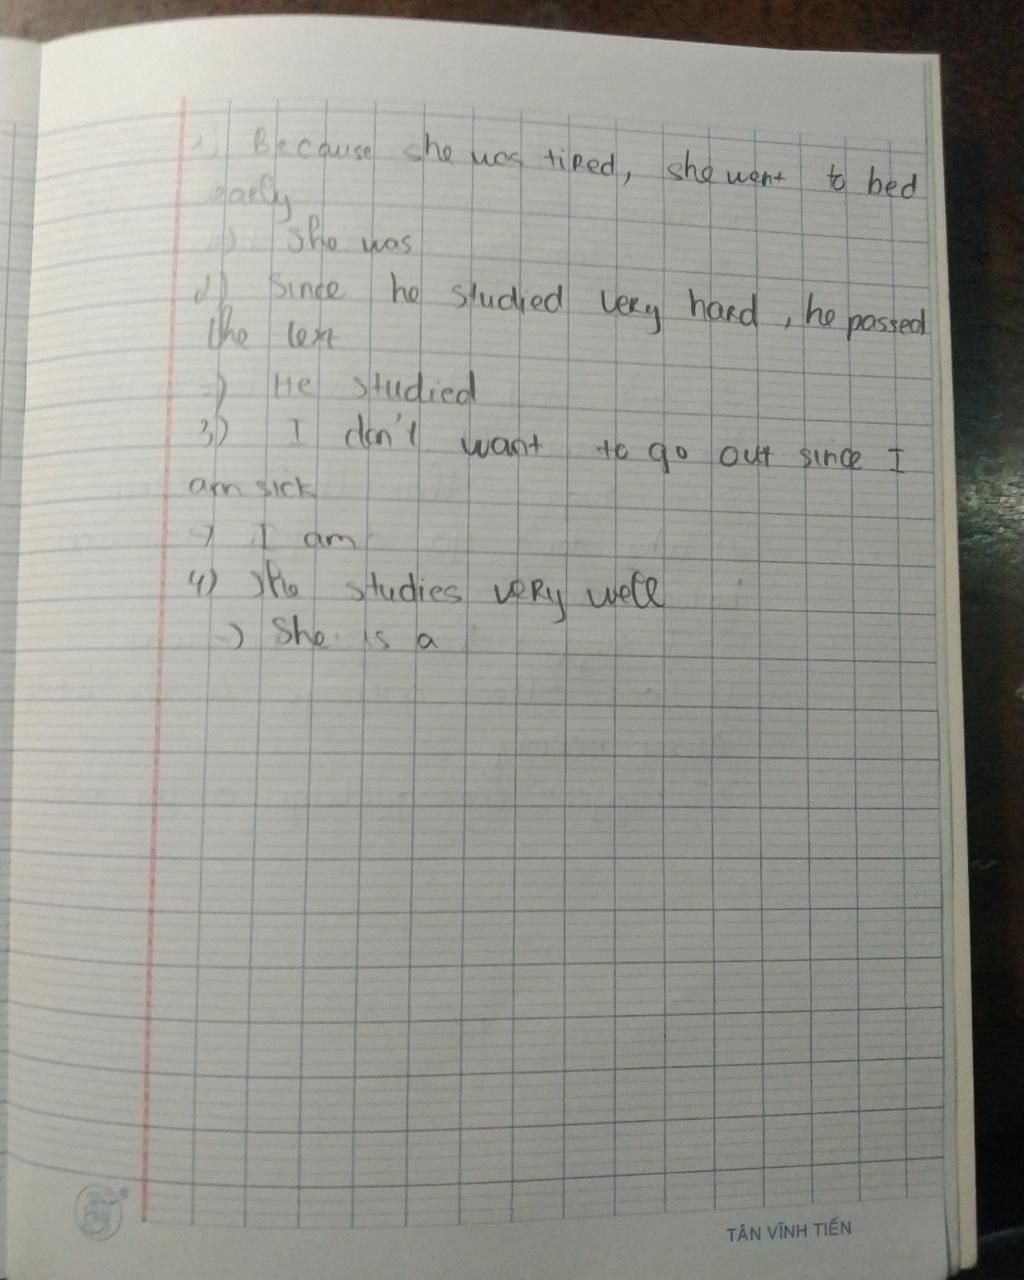 1) Because she was tired, she went to bed
early
=) She was
2) Since he studied very hard, he passed
the text
=) He studied
3) I don't want to go out since I
am sick
=) I am
4) She studies very well
=) She is a
TÂN VĨNH TIẾN